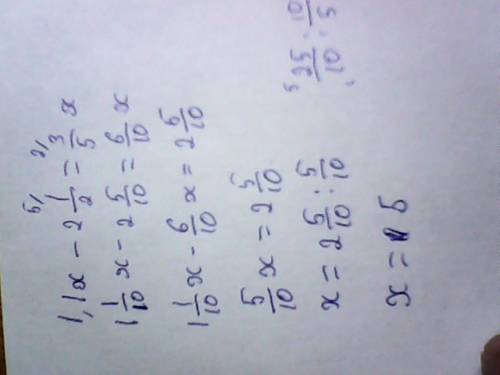 1,1x - 2 1/2 = 3/5 x
1 1/10 x - 2 5/10 = 6/10 x
1 1/10 x - 6/10 x = 2 5/10
5/10 x = 2 5/10
x = 2 5/10 : 5/10
x = 5
25/10 · 10/5